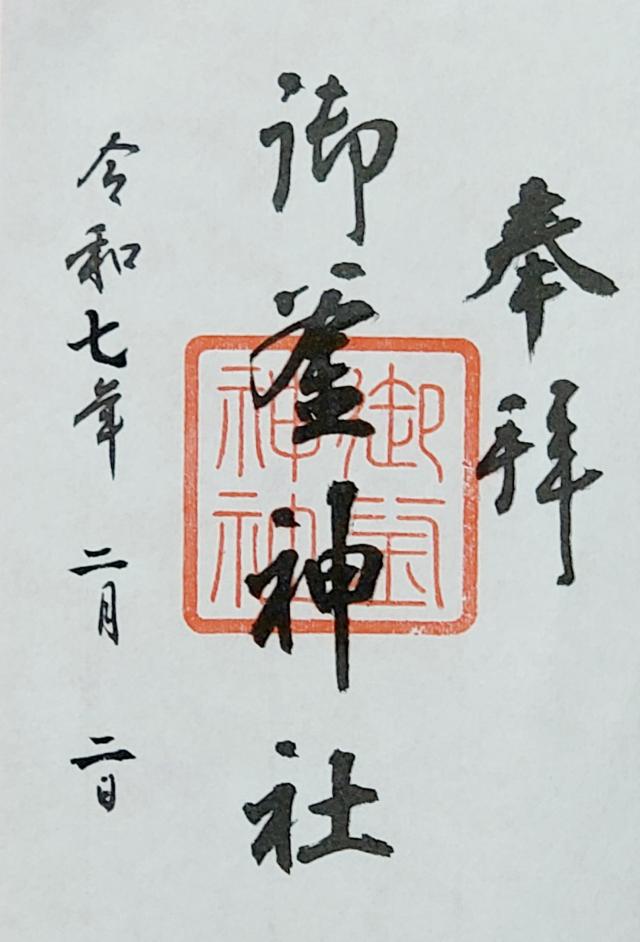 奉拝
御釜神社
令和七年二月二日
御釜神社